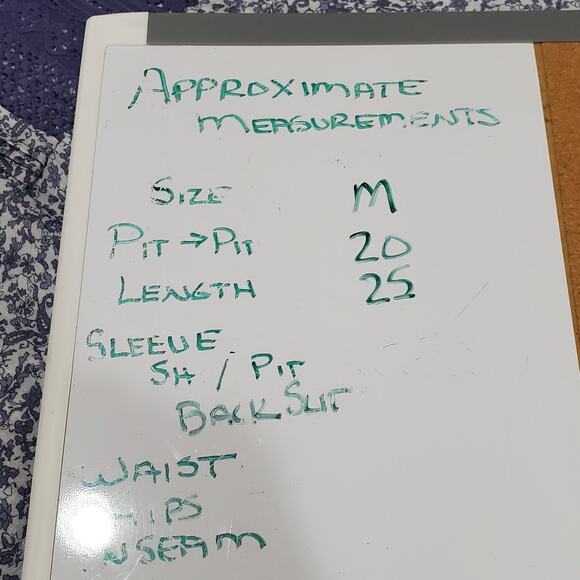 APPROXIMATE
MEASUREMENTS
SIZE M
PIT → PIT 20
LENGTH 25
SLEEVE
SH / PIT
BACK SLIT
WAIST
HIPS
INSEAM